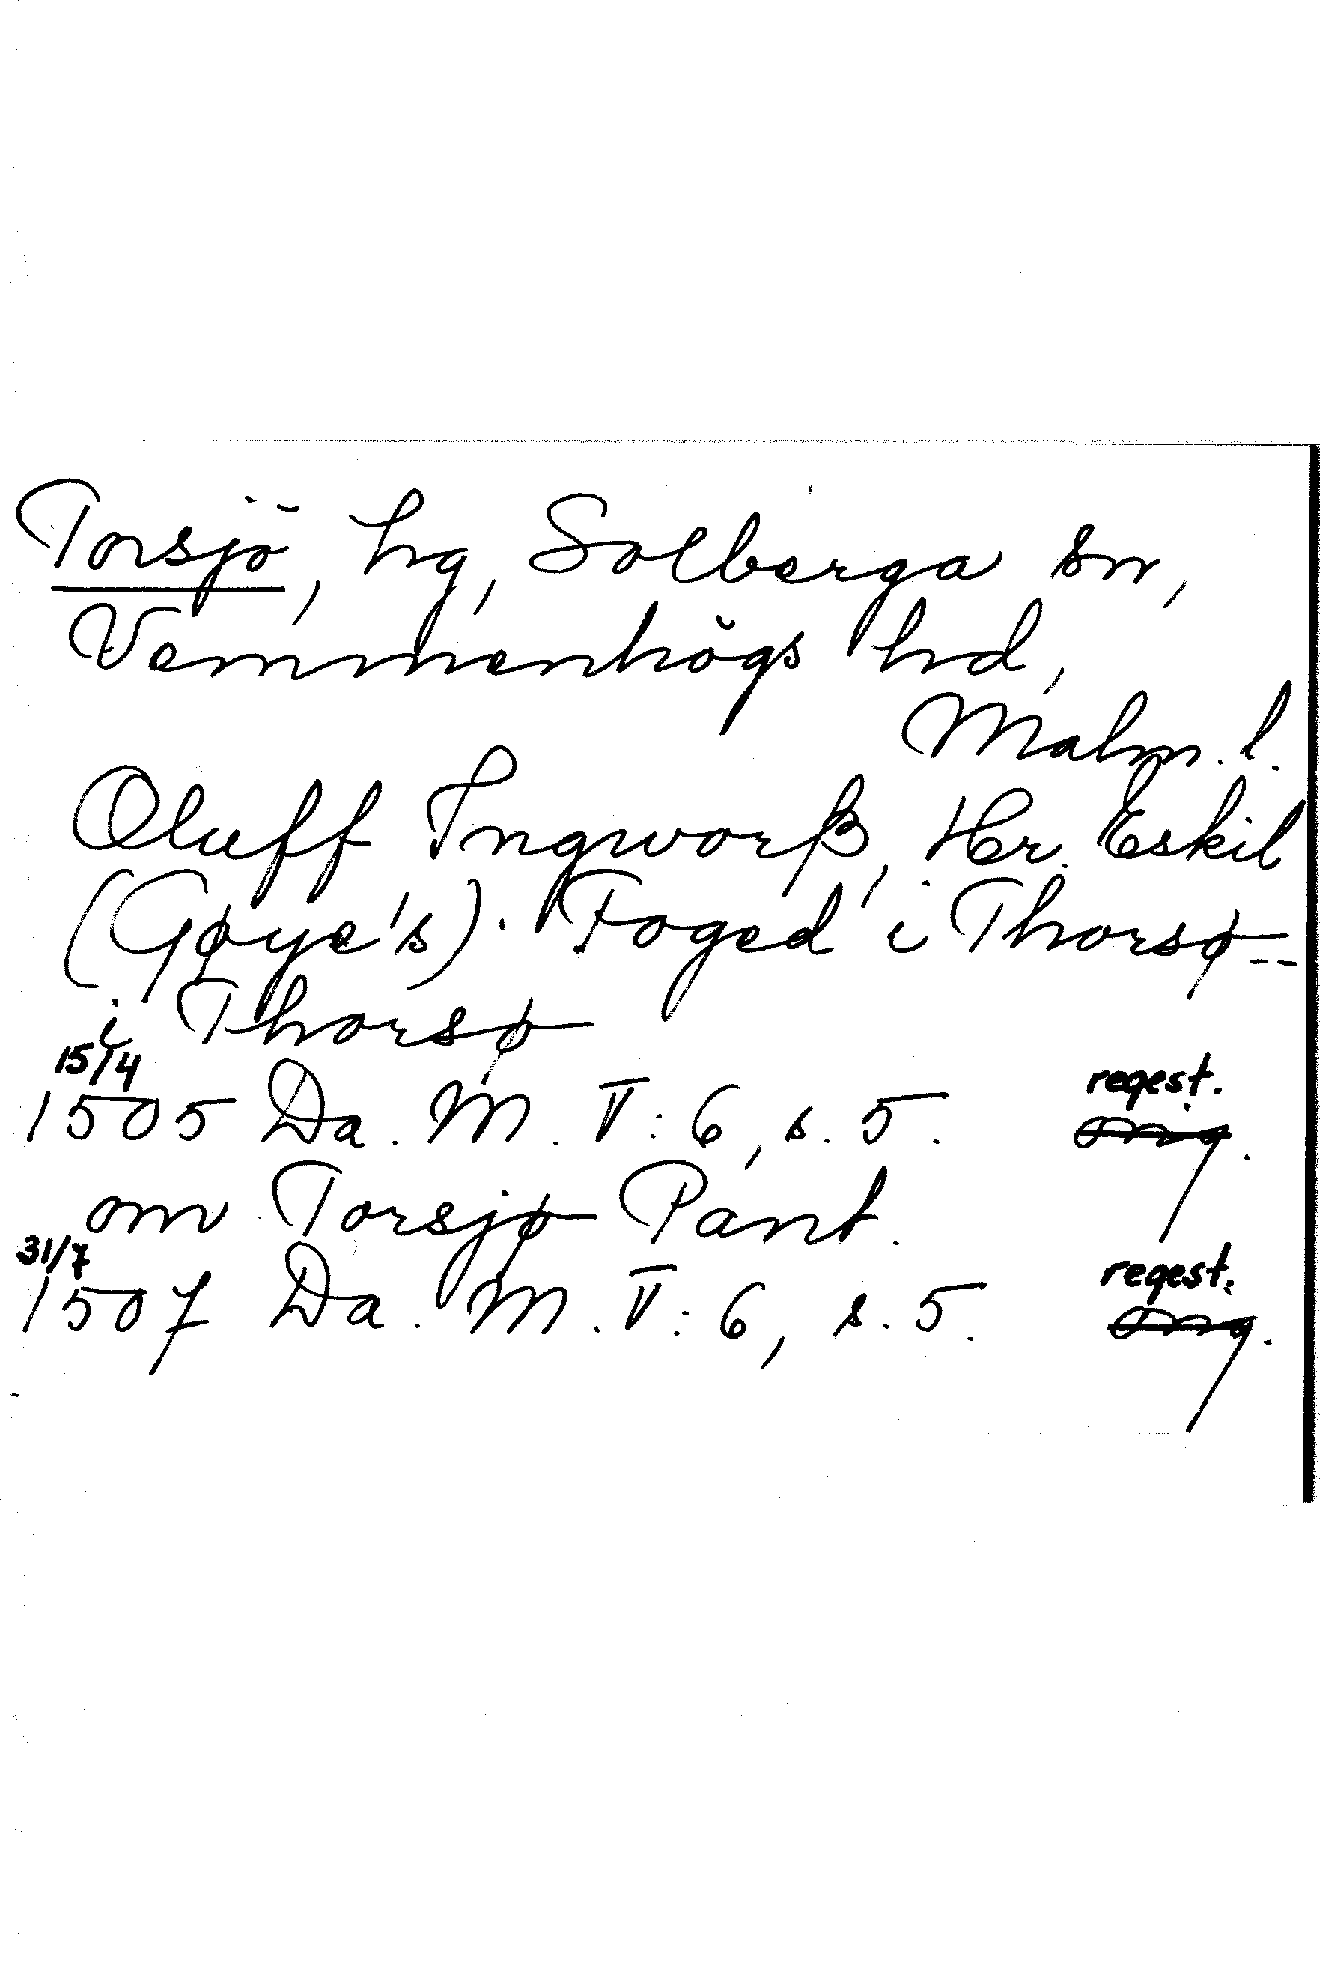 Torsjö, hg, Solberga sn,
Vemmenhögs hd,
Malm. l.
Oluff Ingworß, Hr. Eskil
(Gøye's). Foged i Thorsø --
i Thorsø
15/4
1505 Da. M. V: 6, s. 5. regest.
om Torsjø Pant.
31/7
1507 Da. M. V: 6, s. 5. regest.